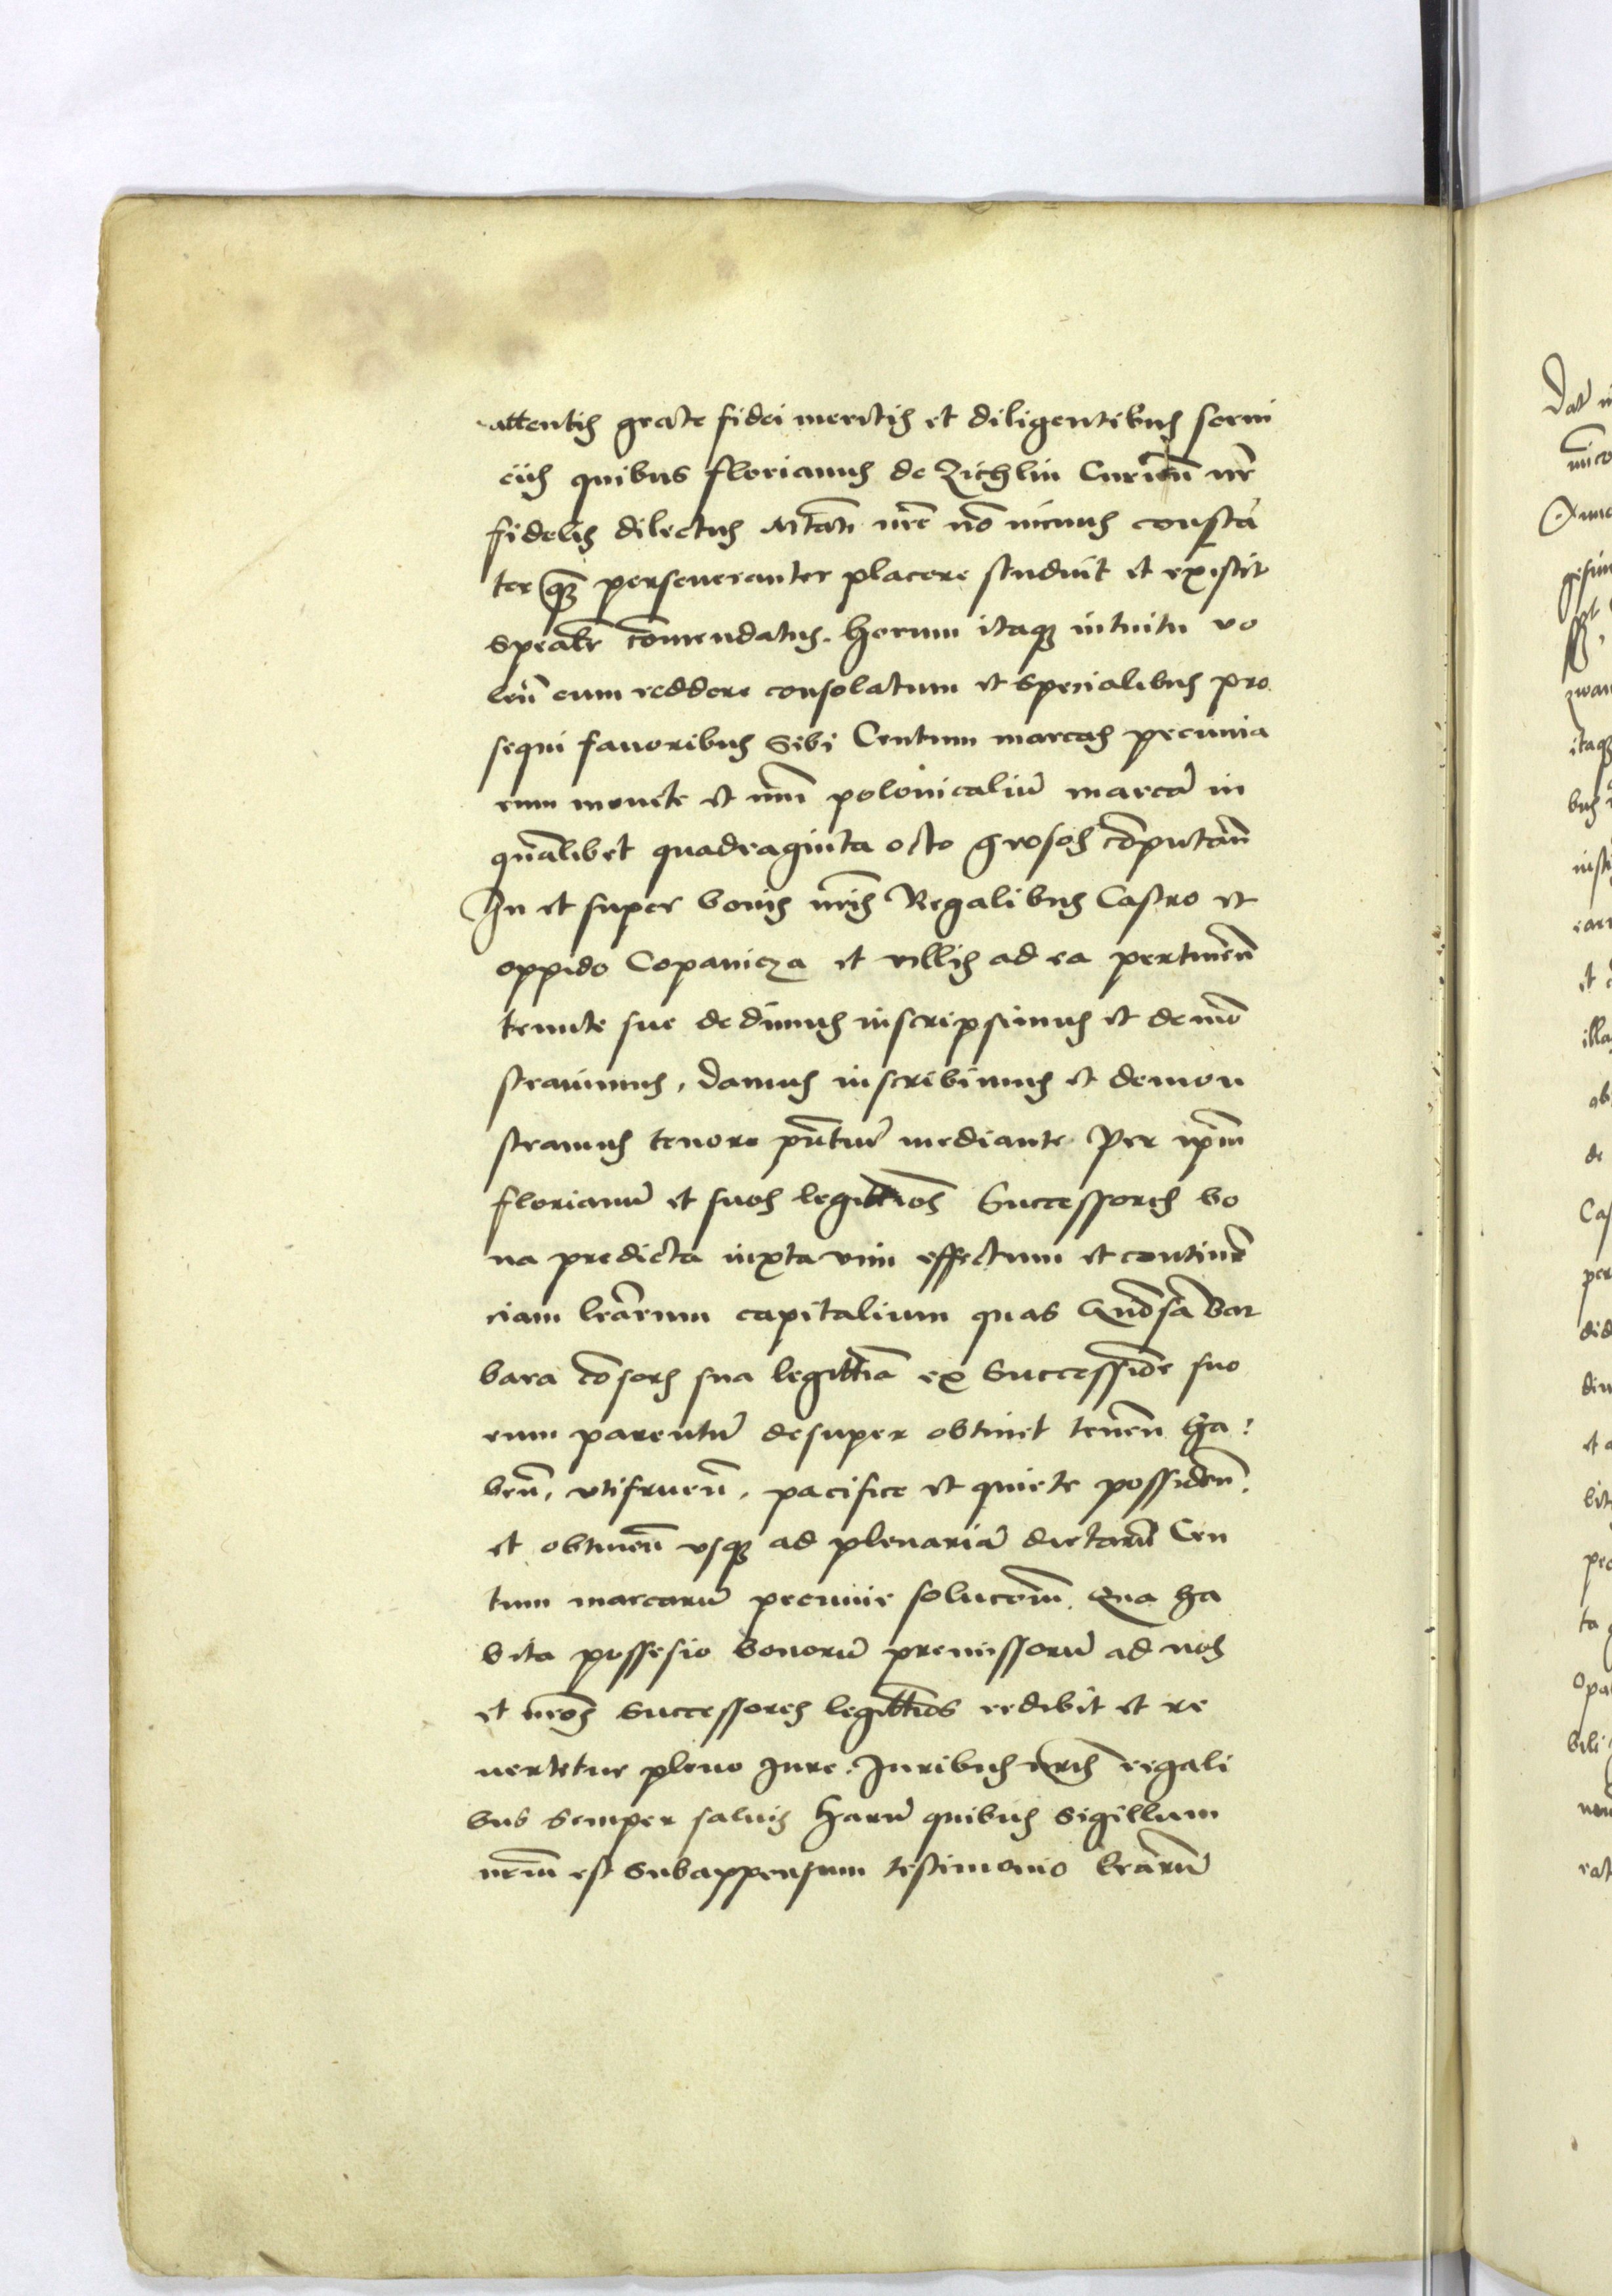 attentis grate fidei meritis et diligentibus servi
ciis quibus florianus de Zichlin Curien̄ nr̄
fidelis dilectus Mtati nr̄e nō minus constā
ter qȝ perseveranter placere studuit et existit
spealr̄ cōmendatus. Horum itaqȝ intuitu vo
len̄ eum reddere consolatum et specialibus pro
sequi favoribus Sibi Centum marcas pecunia
rum monete et nūi polonicaliū marcā in
quālibet quadraginta octo grosos cōputan̄
In et super bonis nr̄is Regalibus Castro et
oppido Copanicza et villis ad ea pertinen̄
tenute sue dedimus inscripsimus et demō
stravimus, damus inscribimus et demon
stramus tenore pn̄tiū mediante Per ip̄m
florianū et suos legittīos Successores bo
na predicta iuxta vim effectum et continē
ciam lr̄arum capitalium quas Gn̄osa Bar
bara cōsors sua legittīa ex Successiōe suo
rum parentū desuper obtinet tenen̄ ha:
ben̄, utifruen̄, pacifice et quiete possiden̄
et obtinen̄ usqȝ ad plenariā dictarū Cen
tum marcarū pecunie solucōem̄. Qua ha
bita possesio bonorū premissorū ad nos
et nr̄os Successores legittīos redibit et re
vertetur pleno Jure. Juribus nr̄is regali
bus Semper salvis Harū quibus Sigillum
nr̄um est Subappensum testimonio lr̄arū
Dat
Anno
itaqȝ
et
illa
de
Cas
per
did
et
bit
ta
bili